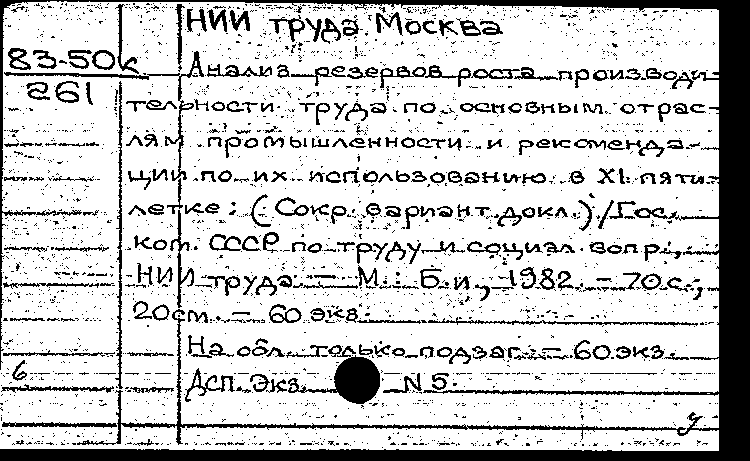 НИИ труда. Москва
83-50к
261
Анализ резервов роста производи-
тельности труда по основным отрас-
лям промышленности и рекоменда-
ции по их использованию в XI пяти-
летке: (Сокр. вариант докл.) / Гос.
ком. СССР по труду и социал. вопр.,
НИИ труда. — М.: Б.и., 1982. — 70 с.;
20 см. — 60 экз.
На обл. только подзаг. — 60 экз.
6
ДСП. Экз. N 5.
у